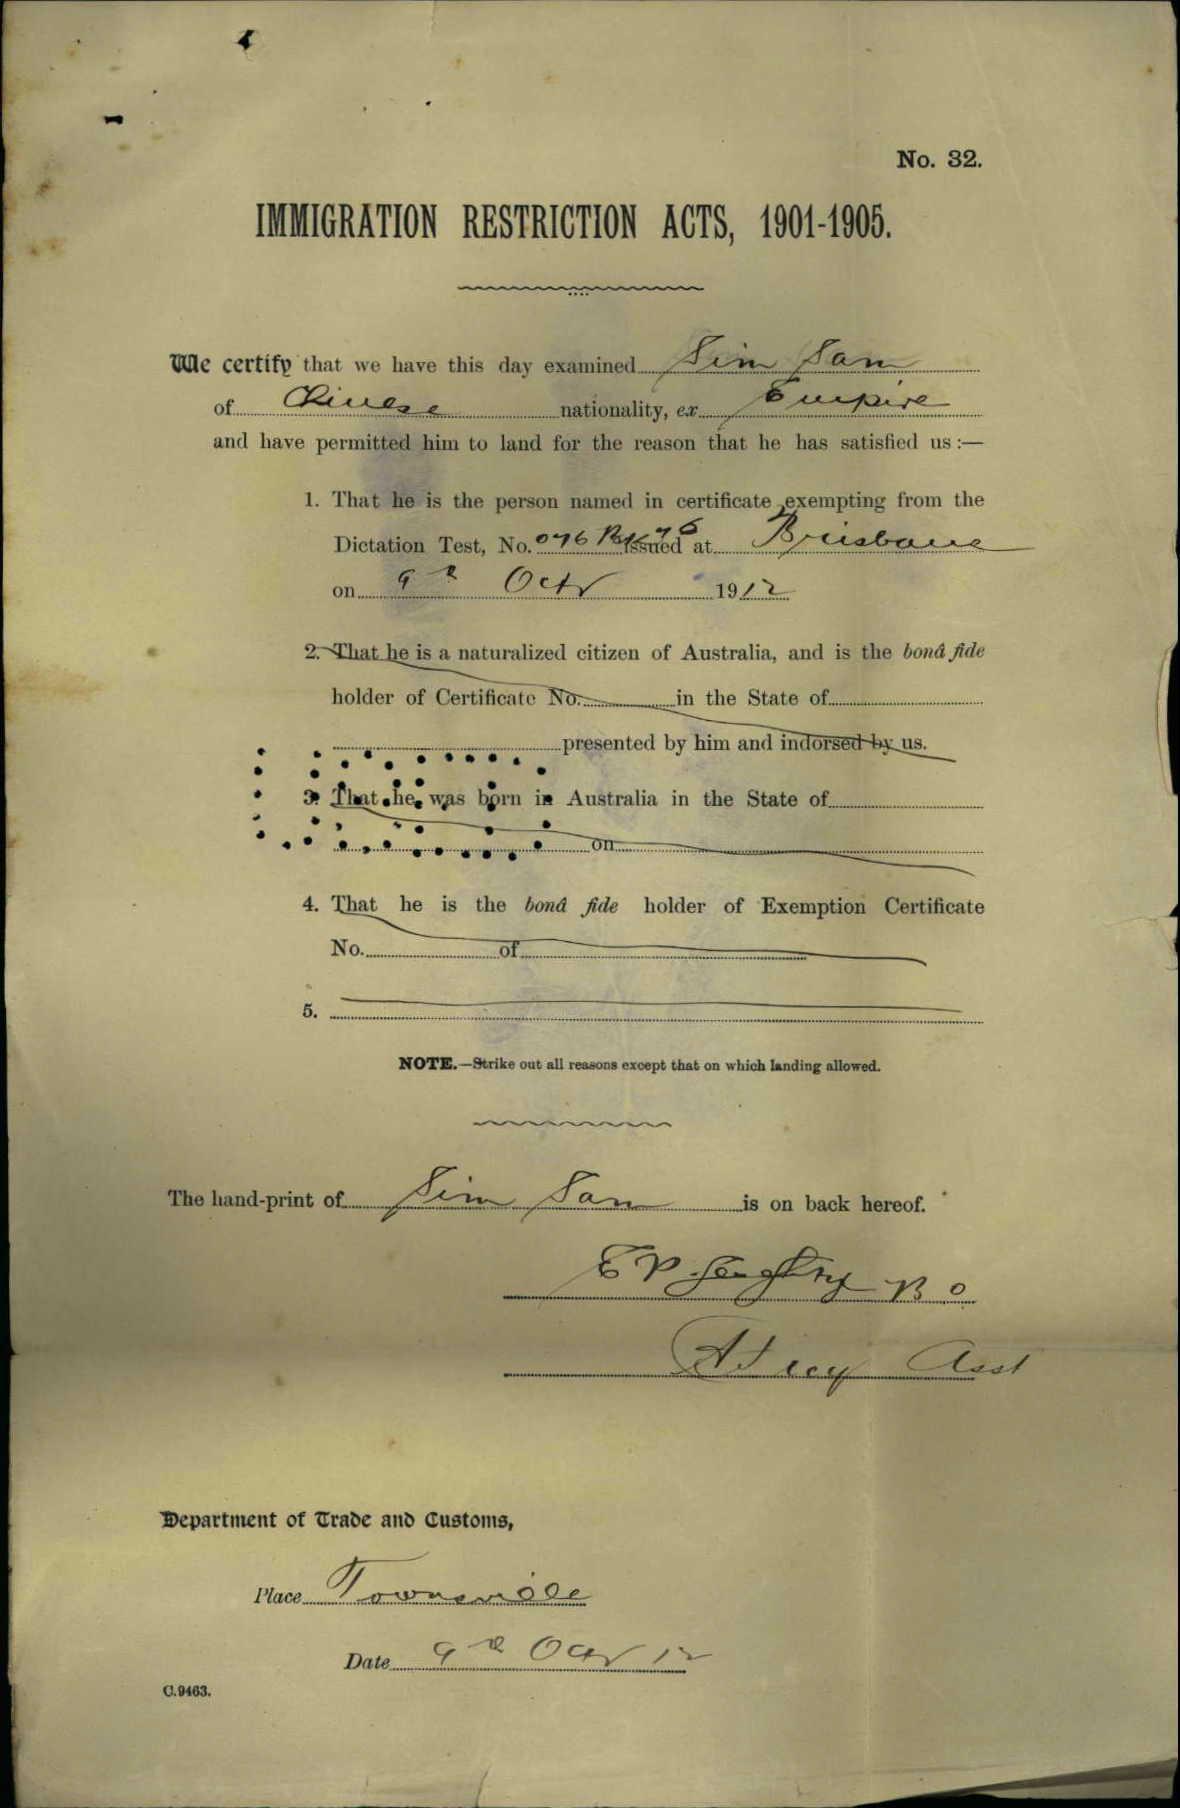 No. 32.
IMMIGRATION RESTRICTION ACTS, 1901-1905.
We certify that we have this day examined Sim Sam
of Chinese nationality, ex Empire
and have permitted him to land for the reason that he has satisfied us :—
1. That he is the person named in certificate exempting from the
Dictation Test, No. 076 Bk 76 issued at Brisbane
on 9th Octr 1912
2. That he is a naturalized citizen of Australia, and is the bonâ fide
holder of Certificate No. in the State of
presented by him and indorsed by us.
3. That he was born in Australia in the State of
on
4. That he is the bonâ fide holder of Exemption Certificate
No. of
5.
NOTE.—Strike out all reasons except that on which landing allowed.
The hand-print of Sim Sam is on back hereof.
E P B O
Asst
Department of Trade and Customs,
Place Townsville
Date 9th Octr 12
C.9463.